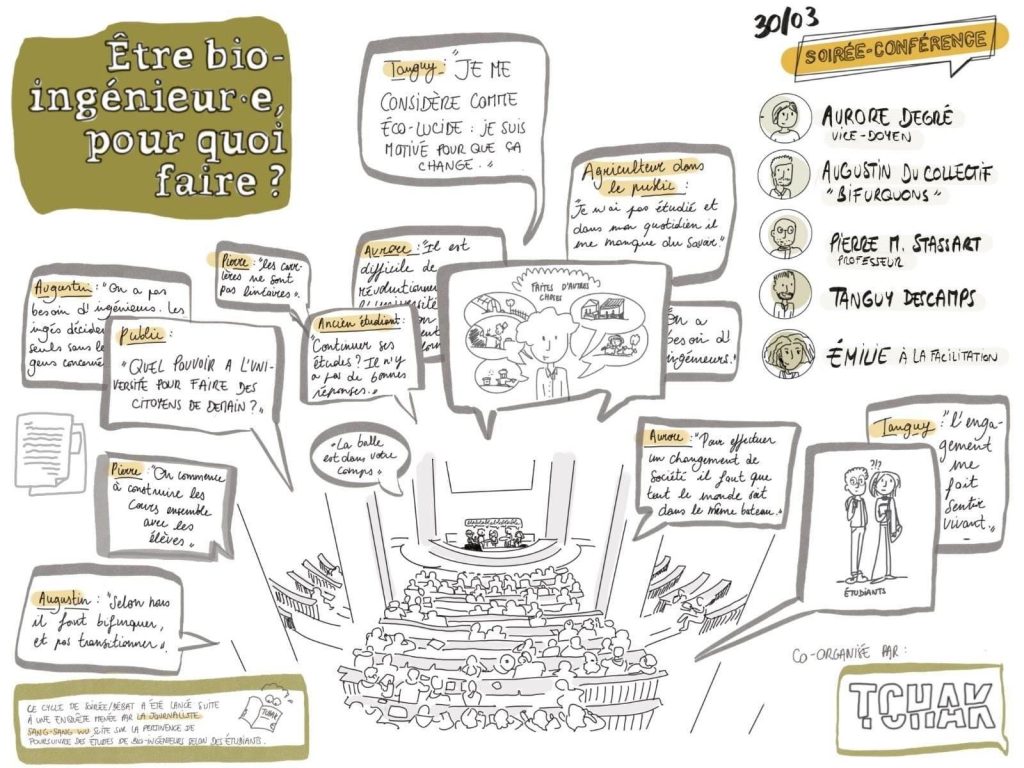 Être bio-
ingénieur·e,
pour quoi
faire ?
30/03
SOIRÉE-CONFÉRENCE
AURORE DEGRÉ
VICE-DOYEN
AUGUSTIN DU COLLECTIF
"BIFURQUONS"
PIERRE M. STASSART
PROFESSEUR
TANGUY DESCAMPS
ÉMILIE À LA FACILITATION
Tanguy : "JE ME
CONSIDÈRE COMME
ÉCO-LUCIDE : JE SUIS
MOTIVÉ POUR QUE ÇA
CHANGE."
Agriculteur dans
le public :
"Je n'ai pas étudié et
dans mon quotidien il
me manque du savoir"
Pierre : "les carr-
ières ne sont
pas linéaires".
Aurore : "Il est
difficile de
révolutionner
l'université
Augustin : "On a pas
besoin d'ingénieurs. Les
ingés décident
seuls sans les
gens concernés
Public :
"QUEL POUVOIR A L'UNI-
VERSITÉ POUR FAIRE DES
CITOYENS DE DEMAIN ?"
Ancien étudiant :
"Continuer ses
études ? Il n'y
a pas de bonnes
réponses."
FAITES D'AUTRES
CHOSES
On a
besoin d'
ingénieurs."
"La balle
est dans votre
camps"
Pierre : "On commence
à construire les
cours ensemble
avec les
élèves"
Aurore : "Pour effectuer
un changement de
société il faut que
tout le monde soit
dans le même bateau."
Tanguy : "l'enga-
gement
me
fait
sentir
vivant."
?!?
ÉTUDIANTS
Augustin : "Selon nous
il faut bifurquer,
et pas transitionner"
Blablablablablabla
CE CYCLE DE SOIRÉE/DÉBAT A ÉTÉ LANCÉ SUITE
À UNE ENQUÊTE MENÉE PAR LA JOURNALISTE
SANG-SANG WU SUITE SUR LA PERTINENCE DE
POURSUIVRE DES ÉTUDES DE BIO-INGÉNIEURS SELON DES ÉTUDIANTS.
TCHAK
CO-ORGANISÉ PAR :
TCHAK